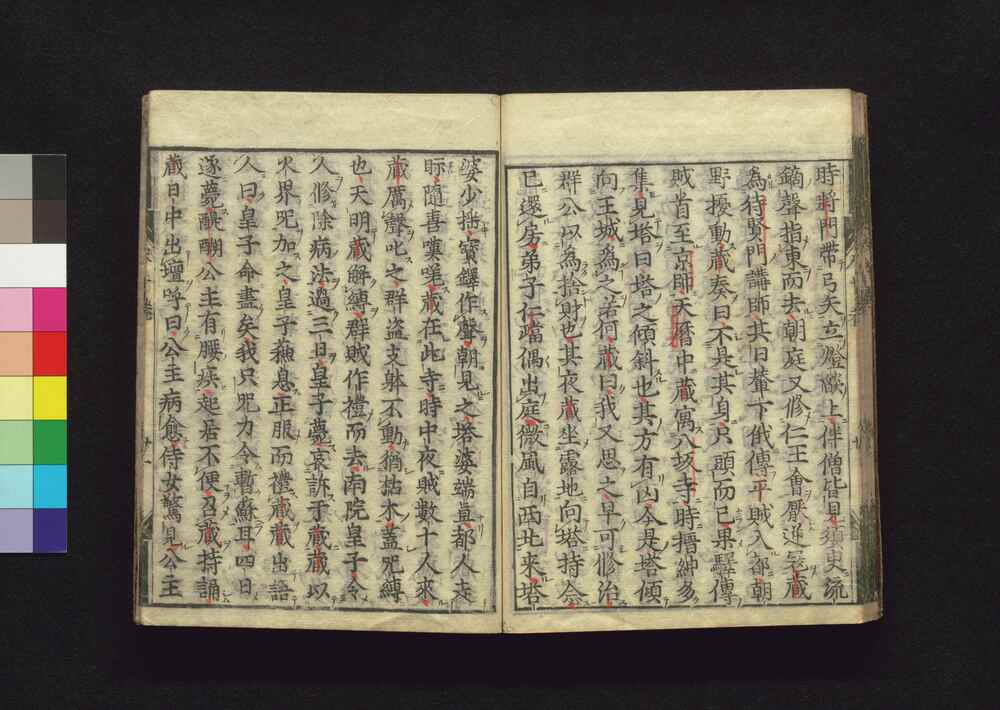 時將門帶弓矢立燈燄上伴僧皆見須臾流
鏑聲指東而去朝庭又修仁王會厭逆冦藏
為待賢門講師其日輦下俄傳平賊入都朝
野擾動藏奏曰不是其身只頭而已果驛傳
賊首至京師天曆中藏寓八坂寺時搢紳多
集見塔曰塔之傾斜也其方有凶今是塔傾
向王城為之若何藏曰我又思之早可修治
群公以為捨財也其夜藏坐露地向塔持念
已還房弟子仁璫偶出庭微風自西北來塔
婆少搖寶鐸作聲朝見之塔婆端直都人走
眎隨喜嘆嗟藏在此寺時中夜賊數十人來
藏厲聲叱之群盜支躰不動猶枯木蓋咒縛
也天明藏解縛群賊作禮而去南院皇子令
人修除病法過三日皇子薨哀訴于藏藏以
火界咒加之皇子蘇息正服而禮藏藏出語
人曰皇子命盡矣我只咒力令暫蘇耳四日
遂薨醍醐公主有腰疾起居不便召藏持誦
藏日中出壇呼曰公主病愈侍女驚見公主